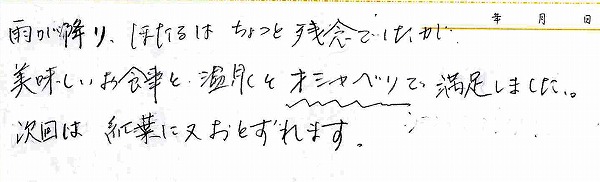 年 月 日
雨が降り、ほたるは ちょっと 残念でしたが
美味しいお食事と 温泉と オシャベリで 満足しました。
次回は 紅葉に又おとずれます。